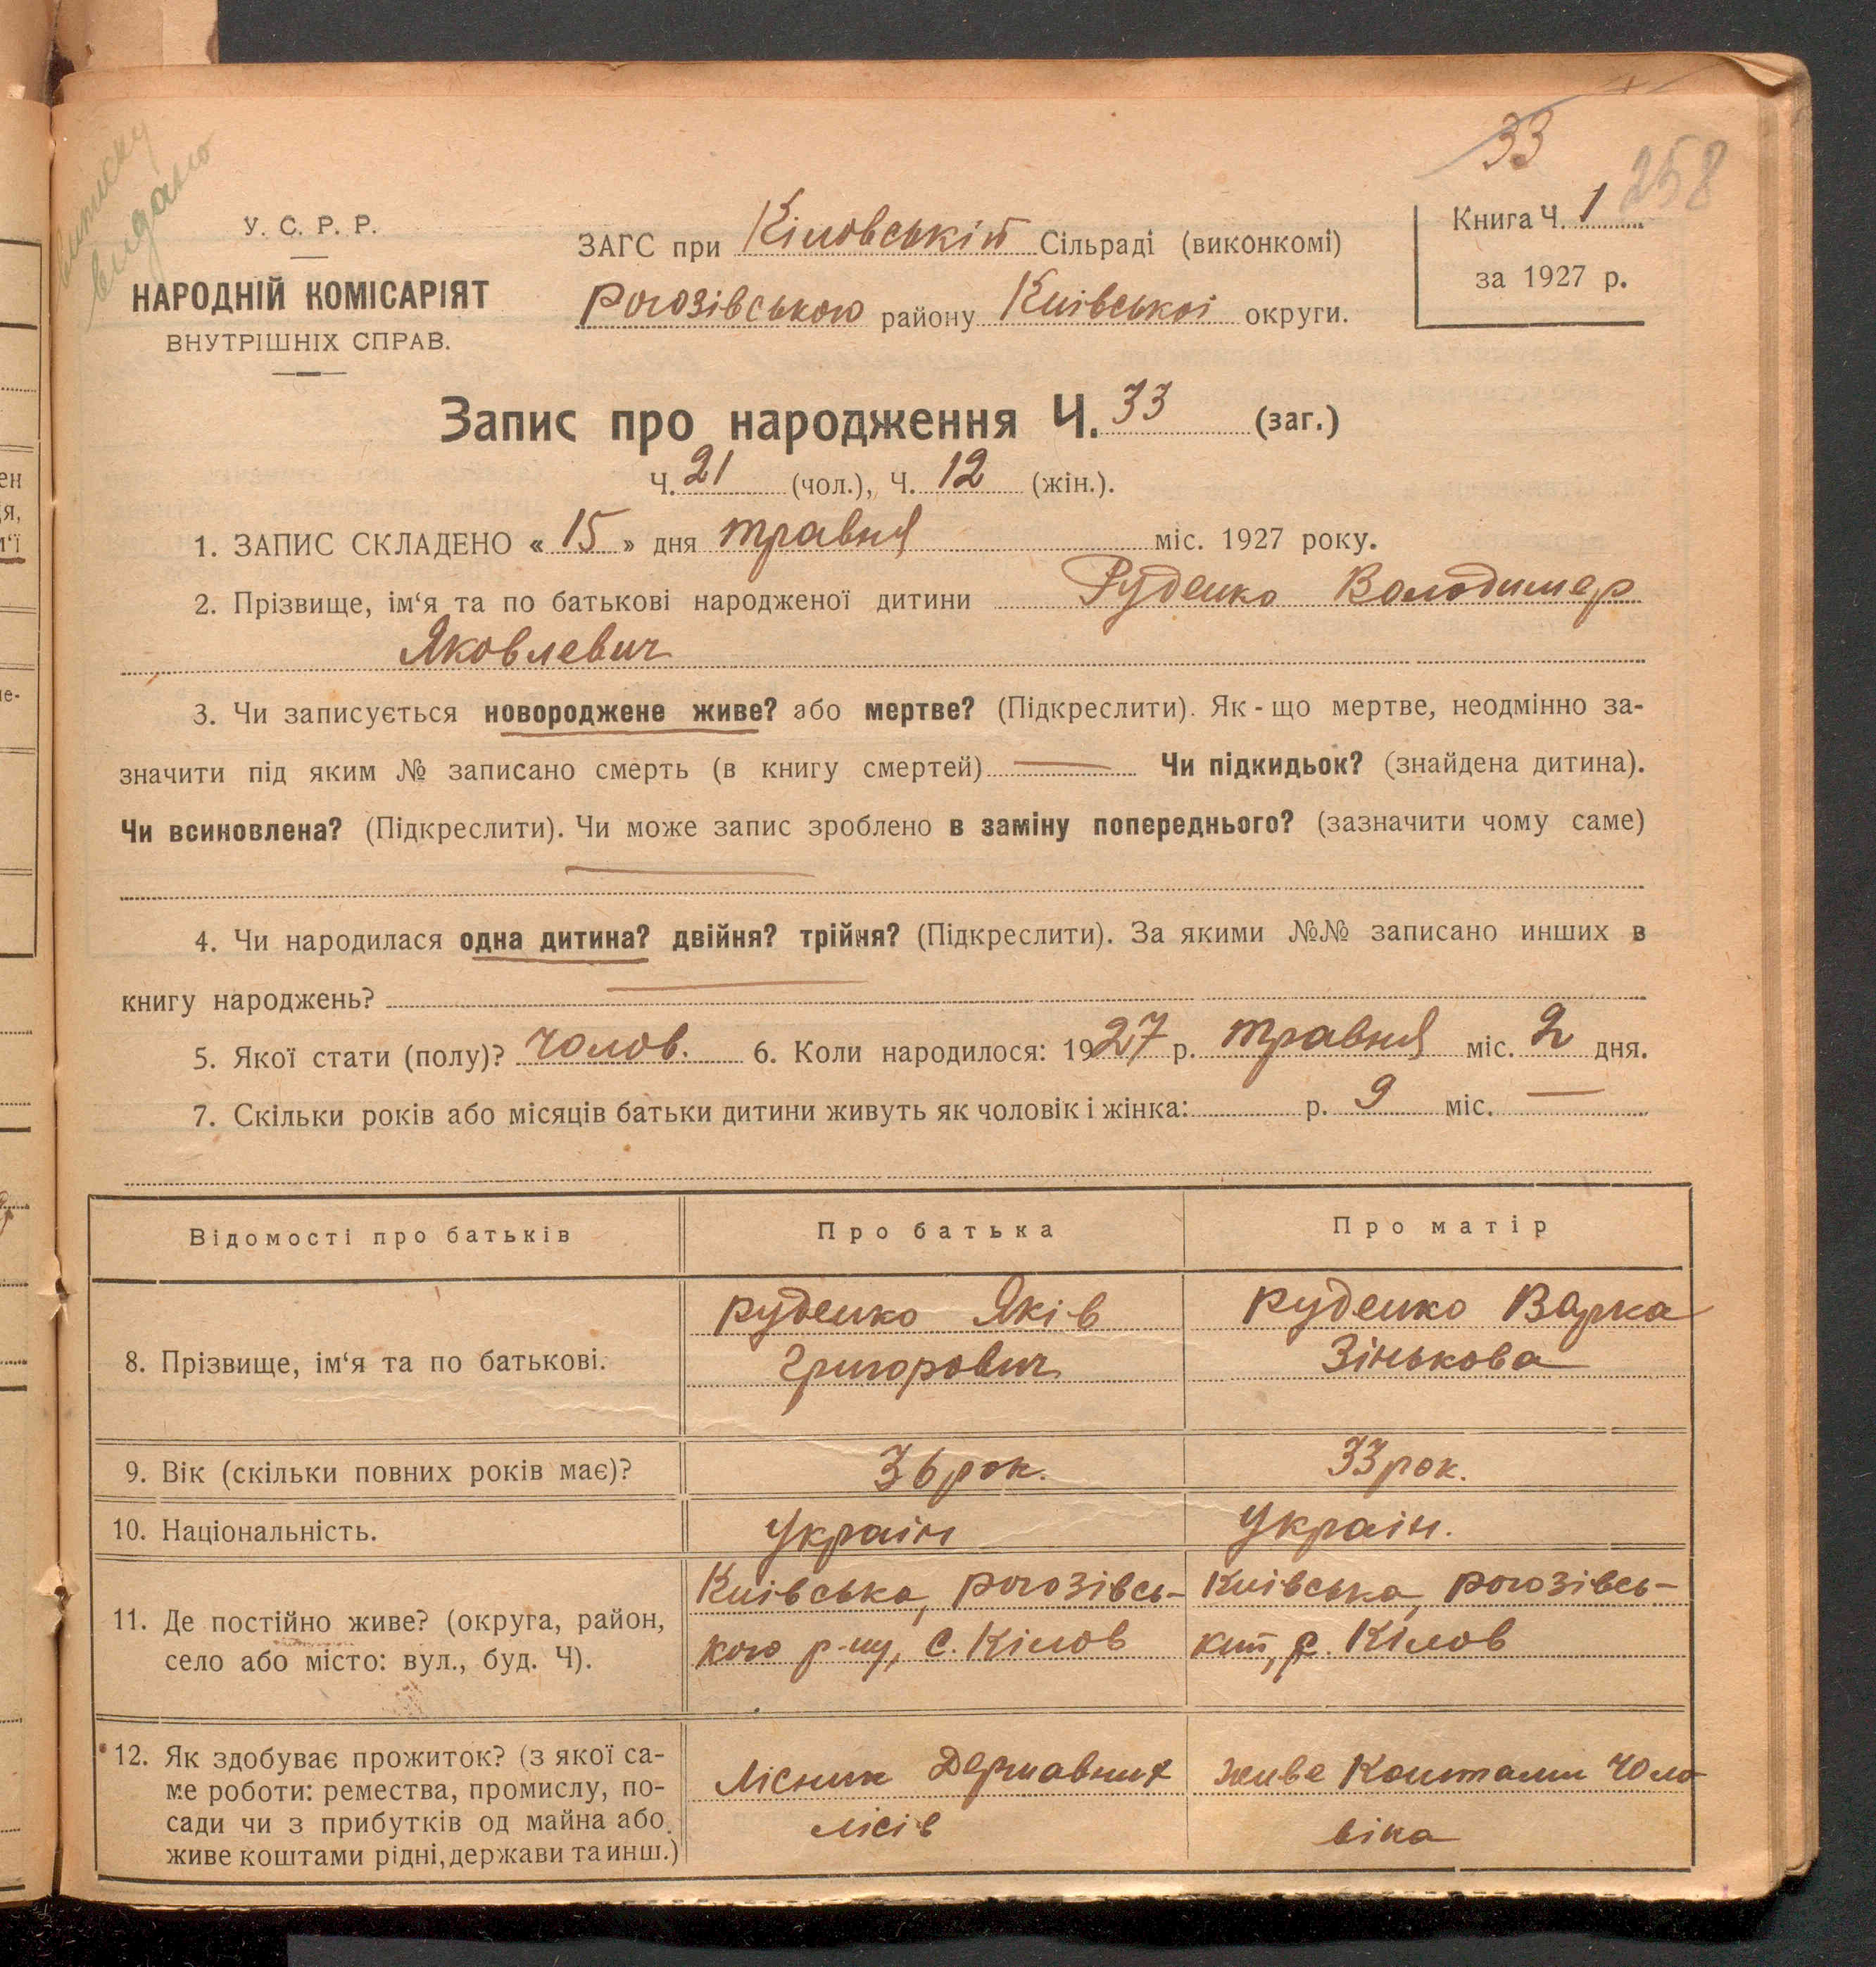 33
258
виписку
видано
У. С. Р. Р.
НАРОДНІЙ КОМІСАРІЯТ
ВНУТРІШНІХ СПРАВ.
ЗАГС при Кіловській Сільраді (виконкомі)
Рогозівського району Київської округи.
Книга Ч. 1
за 1927 р.
Запис про народження Ч. 33 (заг.)
Ч. 21 (чол.), Ч. 12 (жін.).
1. ЗАПИС СКЛАДЕНО « 15 » дня травня міс. 1927 року.
2. Прізвище, ім‘я та по батькові народженої дитини Руденко Володимер
Яковлевич
3. Чи записується новороджене живе? або мертве? (Підкреслити). Як - що мертве, неодмінно за-
значити під яким № записано смерть (в книгу смертей) — Чи підкидьок? (знайдена дитина).
Чи всиновлена? (Підкреслити). Чи може запис зроблено в заміну попереднього? (зазначити чому саме)
4. Чи народилася одна дитина? двійня? трійня? (Підкреслити). За якими №№ записано инших в
книгу народжень?
5. Якої стати (полу)? чолов. 6. Коли народилося: 1927 р. травня міс. 2 дня.
7. Скільки років або місяців батьки дитини живуть як чоловік і жінка: р. 9 міс. —
Відомості про батьків Про батька Про матір
8. Прізвище, ім‘я та по батькові.
Руденко Яків
Григорович
Руденко Варка
Зінькова
9. Вік (скільки повних років має)? 36 рок. 33 рок.
10. Національність. Україн Україн.
11. Де постійно живе? (округа, район,
село або місто: вул., буд. Ч).
Київська, Рогозівсь-
кого р-ну, с. Кілов
Київська, Рогозівсь-
кий, с. Кілов
12. Як здобуває прожиток? (з якої са-
ме роботи: ремества, промислу, по-
сади чи з прибутків од майна або
живе коштами рідні, держави та инш.)
Лісник Державних
лісів
живе коштами чоло
віка